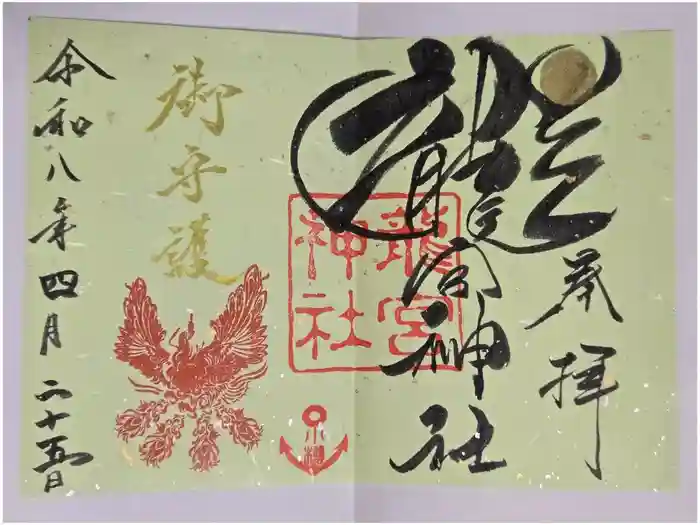 奉拝
龍宮神社
龍宮
神社
小樽
御守護
令和八年四月二十五日